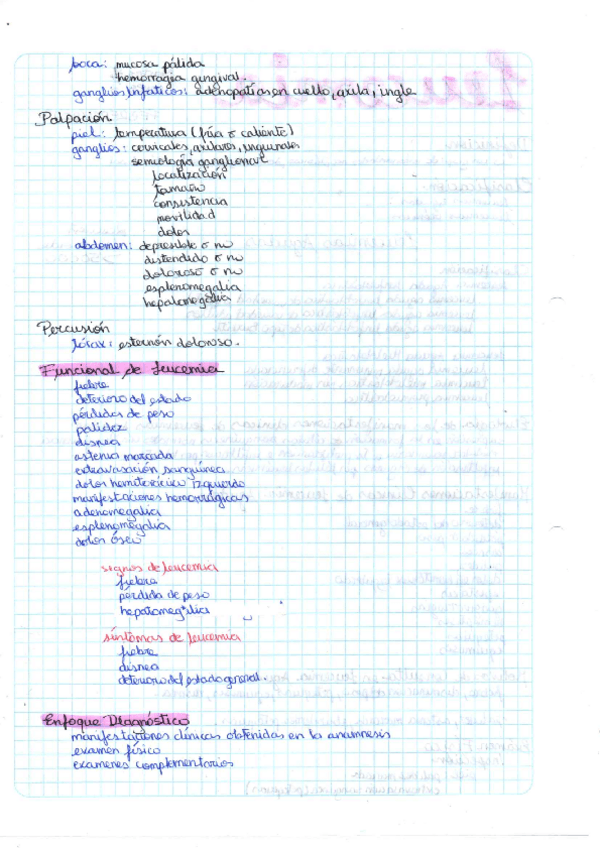 boca: mucosa pálida
hemorragia gingival.
ganglios linfaticos: adenopatías en cuello, axila, ingle
Palpación
piel: temperatura (fría o caliente)
ganglios: cervicales, axilares, inguinales
semiología ganglionar
localización
tamaño
consistencia
movilidad
dolor
abdomen: depresible o no
distendido o no
doloroso o no
esplenomegalia
hepatomegalia
Percusión
tórax: esternón doloroso.
Funcional de leucemia
fiebre
deterioro del estado
pérdidas de peso
palidez
disnea
astenia marcada
extravasación sanguínea
dolor hemitorácico izquierdo
manifestaciones hemorrágicas
adenomegalia
esplenomegalia
dolor óseo
signos de leucemia
fiebre
pérdida de peso
hepatomegalia
síntomas de leucemia
fiebre
disnea
deterioro del estado general.
Enfoque Diagnóstico
manifestaciones clínicas obtenidas en la anamnesis
examen físico
examenes complementarios